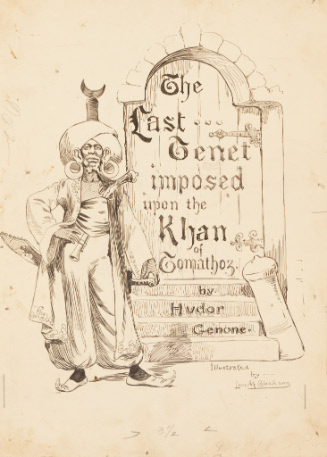 The
Last...
Tenet
imposed
upon the
Khan
of
Tomathoz.
by
Hudor
Genone.
Illustrated
by